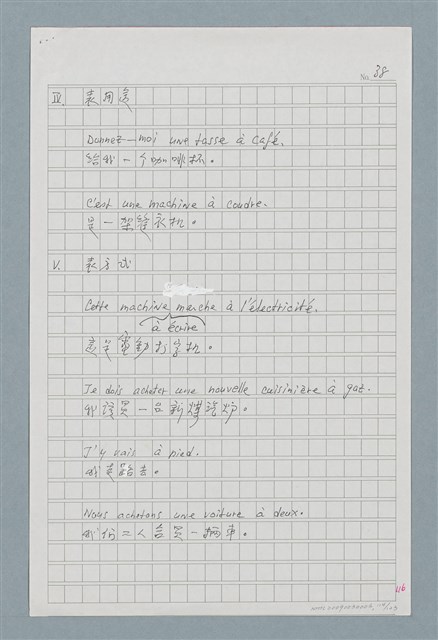 No. 38
IV. 表用途
Donnez-moi une tasse à café.
給我一个咖啡杯。
C'est une machine à coudre.
是一架縫衣机。
V. 表方式
Cette machine marche à l'électricité.
à écrire
這是電動打字机。
Je dois acheter une nouvelle cuisinière à gaz.
我該買一台新煤汽炉。
J'y vais à pied.
我走路去。
Nous achetons une voiture à deux.
我們二人合買一輛車。
46